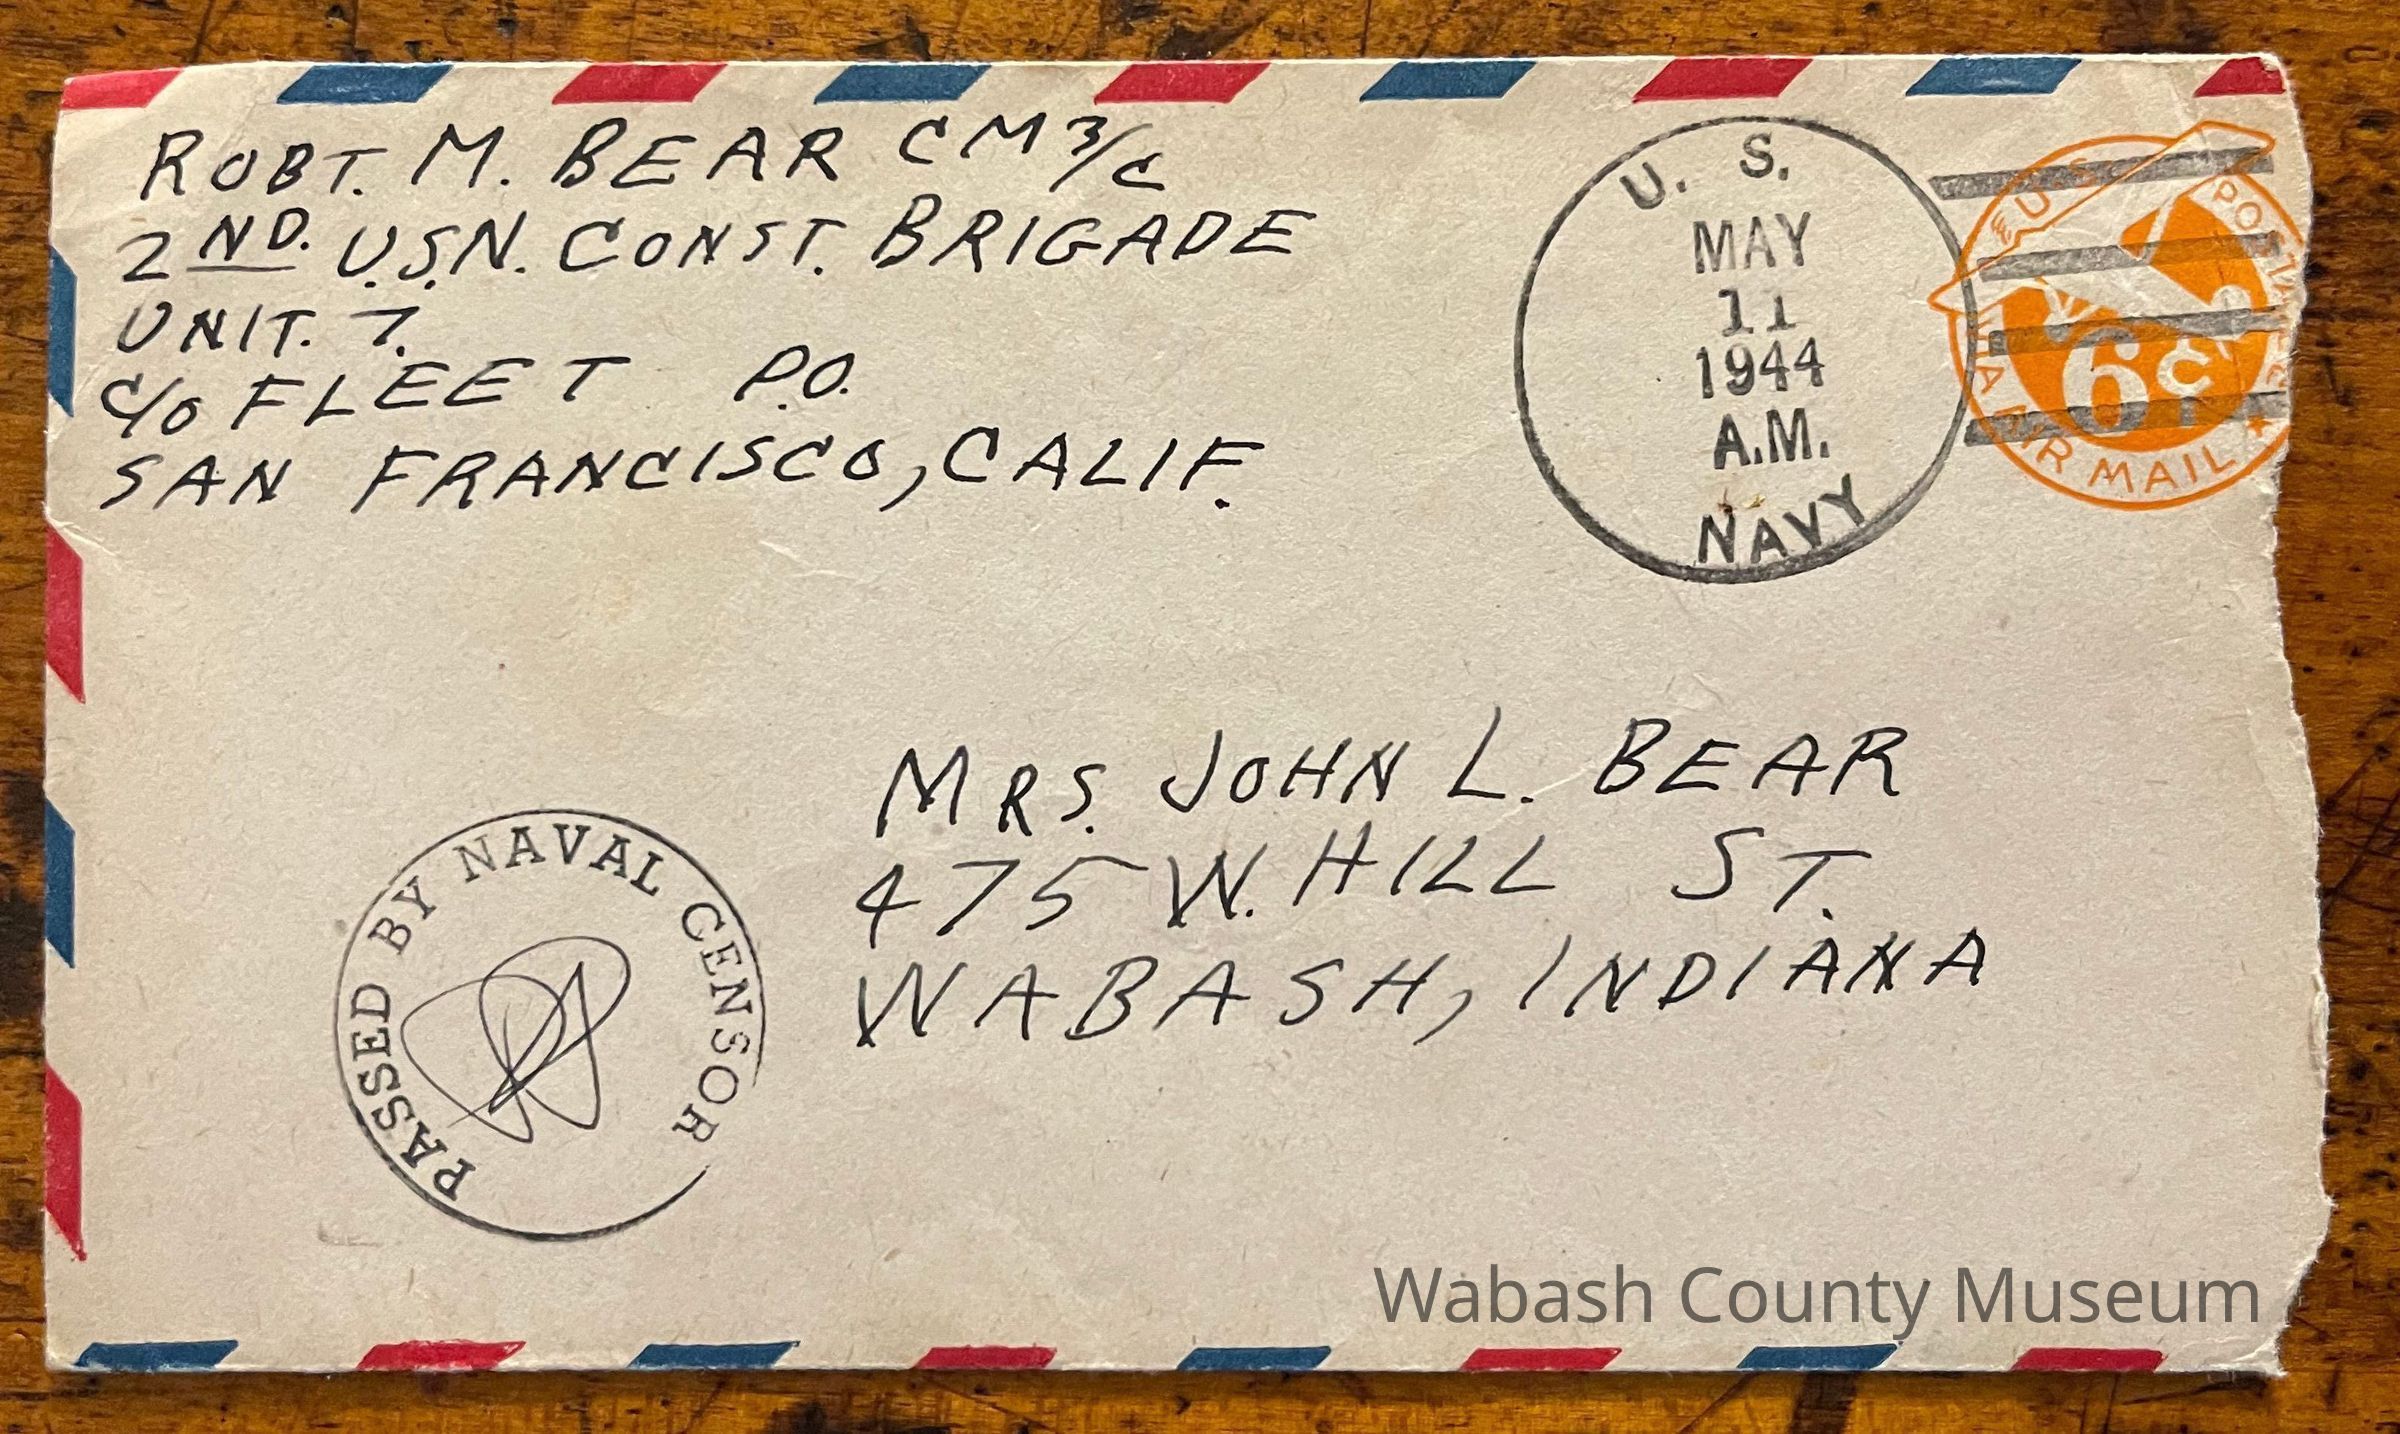 ROBT. M. BEAR CM 3/C
2ND. U.S.N. CONST. BRIGADE
UNIT. 7.
C/O FLEET P.O.
SAN FRANCISCO, CALIF.
U. S.
MAY
11
1944
A.M.
NAVY
U.S. POSTAGE
6¢
VIA AIR MAIL
MRS. JOHN L. BEAR
475 W. HILL ST.
WABASH, INDIANA
PASSED BY NAVAL CENSOR
Wabash County Museum